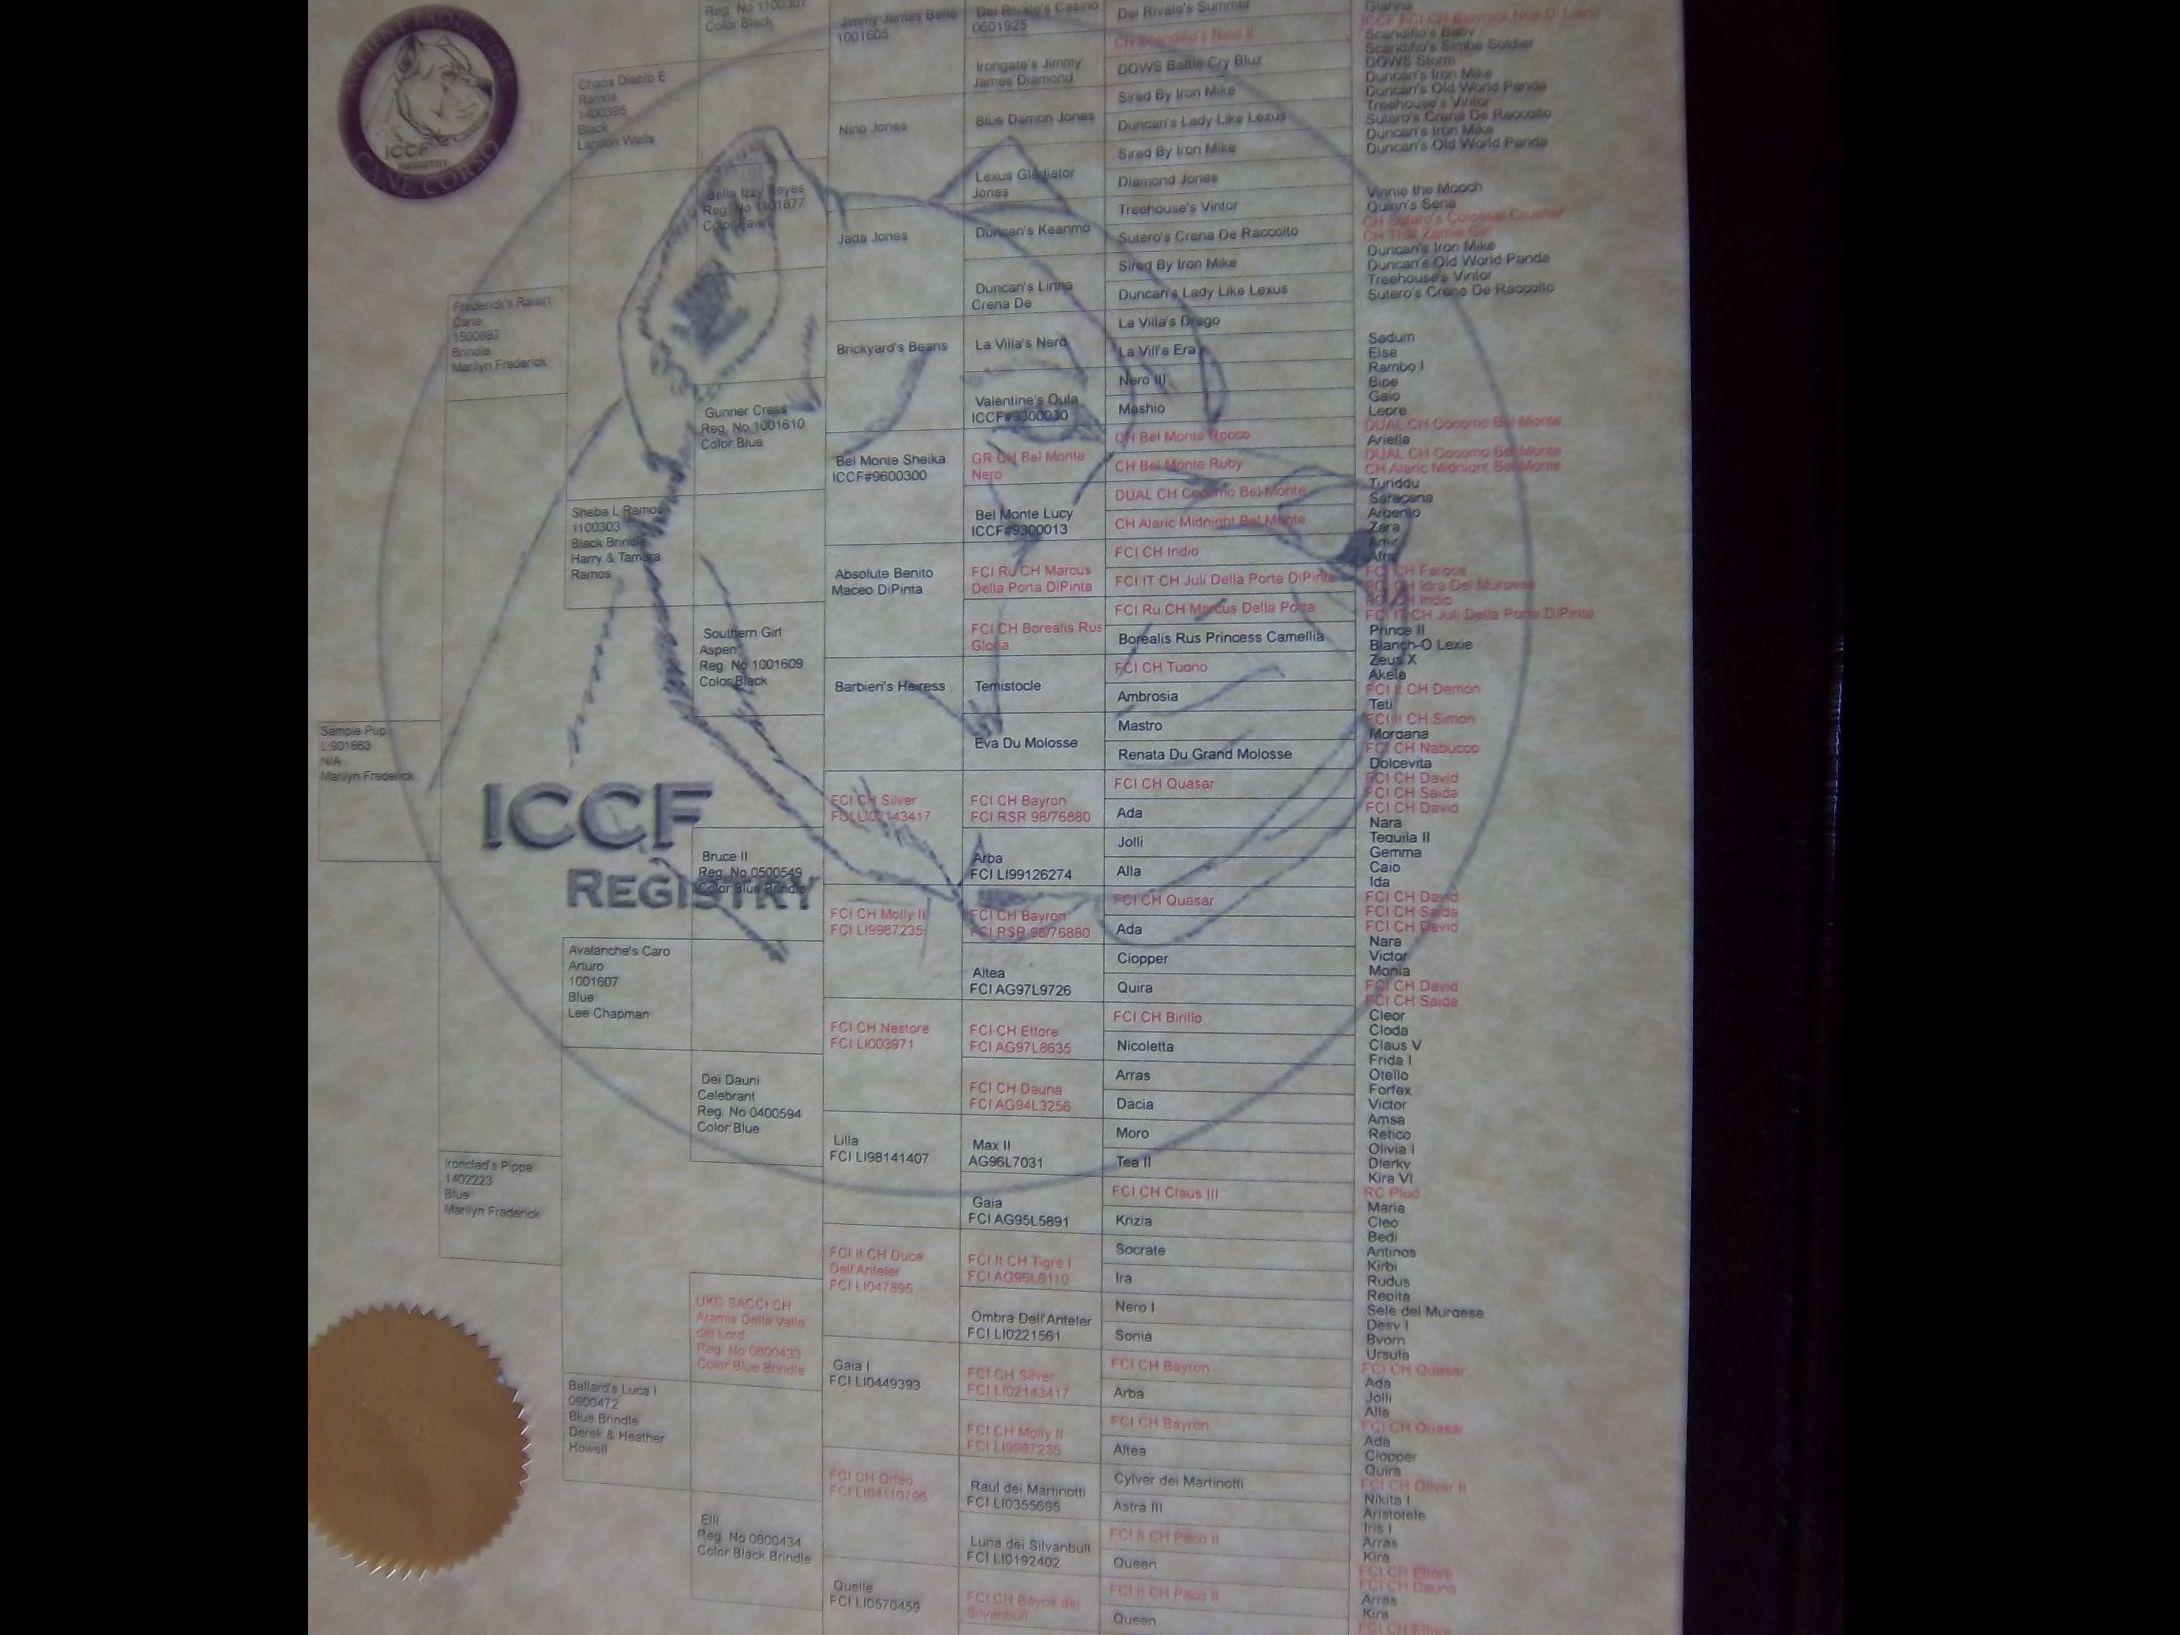 ANCIENT PROTECTORS
ICCF
REGISTRY
CANE CORSO
Sample Pup
L:901663
N/A
Marilyn Frederick
Frederick's Raisin'
Cane
1500887
Brindle
Marilyn Frederick
Ironclad's Pippa
1402223
Blue
Marilyn Frederick
Chaos Diablo E
Ramos
1400395
Black
Landon Wells
Sheba L Ramos
1100303
Black Brindle
Harry & Tamara
Ramos
ICCF
REGISTRY
Avalanche's Caro
Arturo
1001607
Blue
Lee Chapman
Ballard's Luca I
0900472
Blue Brindle
Derek & Heather
Howell
Reg. No 1100307
Color Black
Bella Izzy Reyes
Reg. No 1101877
Gunner Cress
Reg. No 1001610
Color Blue
Southern Girl
Aspen
Reg. No 1001609
Color Black
Bruce II
Reg. No 0500549
Color Blue Brindle
Dei Dauni
Celebrant
Reg. No 0400594
Color Blue
UKC SACCI CH
Aramis Della Valle
dei Lord
Reg. No 0800433
Color Blue Brindle
Elli
Reg. No 0800434
Color Black Brindle
Jimmy James Baria
1001605
Nino Jones
Jada Jones
Brickyard's Beans
Bel Monte Sheika
ICCF#9600300
Absolute Benito
Maceo DiPinta
Barbieri's Heiress
FCI CH Silver
FCI LI02143417
FCI CH Molly II
FCI LI9987235
FCI CH Nestore
FCI LI003971
Lilla
FCI LI98141407
FCI It CH Duce
Dell'Anteler
FCI LI047895
Gaia I
FCI LI0449393
FCI CH Orfeo
FCI LI04110796
Quelle
FCI LI0570459
Del Rivale's Casino
0601925
Irongate's Jimmy
James Diamond
Blue Damon Jones
Lexus Gladiator
Jones
Duncan's Keanmo
Duncan's Linna
Crena De
La Villa's Nero
Valentine's Oula
ICCF#9300030
GR CH Bel Monte
Nero
Bel Monte Lucy
ICCF#9300013
FCI Ru CH Marcus
Della Porta DiPinta
FCI CH Borealis Rus
Gloria
Temistocle
Eva Du Molosse
FCI CH Bayron
FCI RSR 98/76880
Arba
FCI LI99126274
FCI CH Bayron
FCI RSR 98/76880
Altea
FCI AG97L9726
FCI CH Ettore
FCI AG97L8635
FCI CH Dauna
FCI AG94L3256
Max II
AG96L7031
Gaia
FCI AG95L5891
FCI It CH Tigre I
FCI AG96L6110
Ombra Dell'Anteler
FCI LI0221561
FCI CH Silver
FCI LI02143417
FCI CH Molly II
FCI LI9987235
Raul dei Martinotti
FCI LI0355695
Luna dei Silvanbull
FCI LI0192402
FCI CH Bayos dei
Silvanbull
Del Rivale's Summer
CH Scandifio's Nino II
DGWS Battle Cry Bluz
Sired By Iron Mike
Duncan's Lady Like Lexus
Sired By Iron Mike
Diamond Jones
Treehouse's Vintor
Sutero's Crena De Raccolto
Sired By Iron Mike
Duncan's Lady Like Lexus
La Villa's Drago
La Vill'a Era
Nero III
Mashio
CH Bel Monte Rocco
CH Bel Monte Ruby
DUAL CH Cocomo Bel Monte
CH Alaric Midnight Bel Monte
FCI CH Indio
FCI IT CH Juli Della Porta DiPinta
FCI Ru CH Marcus Della Porta
Borealis Rus Princess Camellia
FCI CH Tuono
Ambrosia
Mastro
Renata Du Grand Molosse
FCI CH Quasar
Ada
Jolli
Alla
FCI CH Quasar
Ada
Ciopper
Quira
FCI CH Birillo
Nicoletta
Arras
Dacia
Moro
Tea II
FCI CH Claus III
Krizia
Socrate
Ira
Nero I
Sonia
FCI CH Bayron
Arba
FCI CH Bayron
Altea
Cylver dei Martinotti
Astra III
FCI It CH Paco II
Queen
FCI It CH Paco II
Queen
Gianna
Scandifio's Baby
Scandifio's Simba Soldier
DGWS Storm
Duncan's Iron Mike
Duncan's Old World Panda
Treehouse's Vintor
Sutero's Crena De Raccolto
Duncan's Iron Mike
Duncan's Old World Panda
Vinnie the Mooch
Quinn's Sena
CH Sutero's Colossal Crusher
Duncan's Iron Mike
Duncan's Old World Panda
Treehouse's Vintor
Sutero's Crena De Raccolto
Sadum
Elsa
Rambo I
Bice
Gaio
Lepre
DUAL CH Cocomo Bel Monte
Ariella
DUAL CH Cocomo Bel Monte
CH Alaric Midnight Bel Monte
Turiddu
Saracena
Argenio
Zara
Amir
Afra
FCI CH Fargos
FCI CH Idra Del Murgese
FCI CH Indio
FCI IT CH Juli Della Porta DiPinta
Prince II
Blanch-O Lexie
Zeus X
Akela
FCI It CH Demon
Teti
FCI It CH Simon
Morgana
FCI CH Nabucco
Dolcevita
FCI CH David
FCI CH Saida
FCI CH David
Nara
Tequila II
Gemma
Caio
Ida
FCI CH David
FCI CH Saida
FCI CH David
Nara
Victor
Monia
FCI CH David
FCI CH Saida
Cleor
Cloda
Claus V
Frida I
Otello
Forfex
Victor
Amsa
Retico
Olivia I
Dierky
Kira VI
RC Plud
Maria
Cleo
Bedi
Antinos
Kirbi
Rudus
Repita
Sele del Murgese
Desy I
Byorn
Ursula
FCI CH Quasar
Ada
Jolli
Alla
FCI CH Quasar
Ada
Ciopper
Quira
FCI CH Oliver II
Nikita I
Aristotele
Iris I
Arras
Kira
FCI CH Ettore
FCI CH Dauna
Arras
Kira
FCI CH Ettore